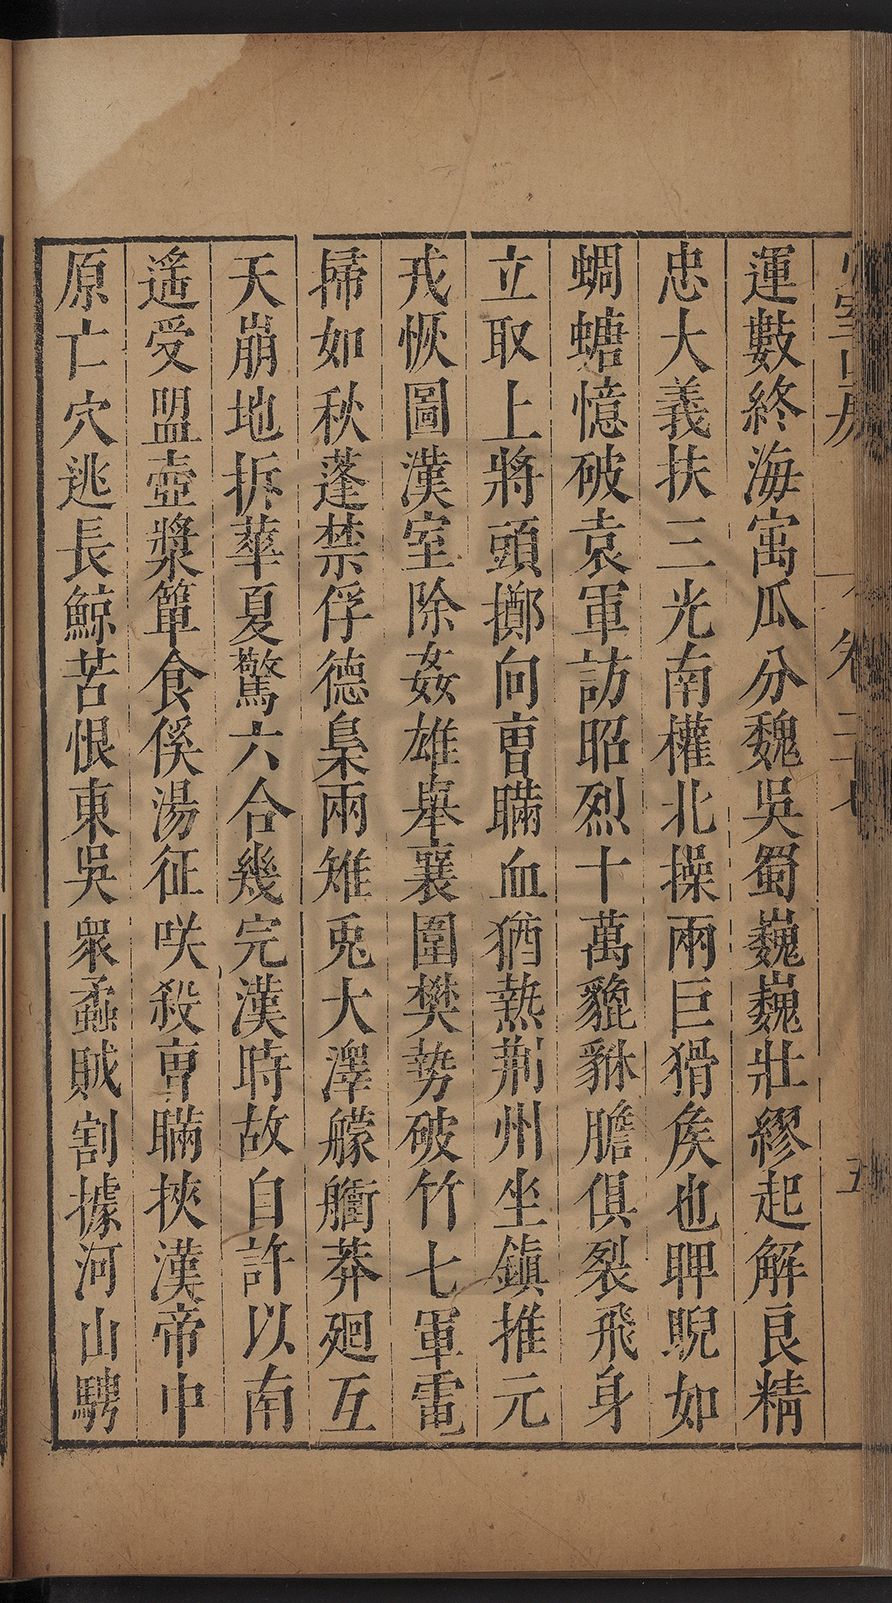 運數終海寓瓜分魏吳蜀巍巍壯繆起解良精
忠大義扶三光南權北操兩巨猾矦也睥睨如
蜩螗憶破袁軍訪昭烈十萬貔貅膽俱裂飛身
立取上將頭擲向曺瞞血猶熱荆州坐鎮推元
戎恢圖漢室除姦雄舉襄圍樊勢破竹七軍電
掃如秋蓬禁俘德梟兩雉兎大澤艨艟莽廻互
天崩地拆華夏驚六合幾完漢時故自許以南
遙受盟壺漿簞食徯湯征咲殺曺瞞挾漢帝中
原亡穴逃長鯨苦恨東吳衆蟊賊割據河山騁